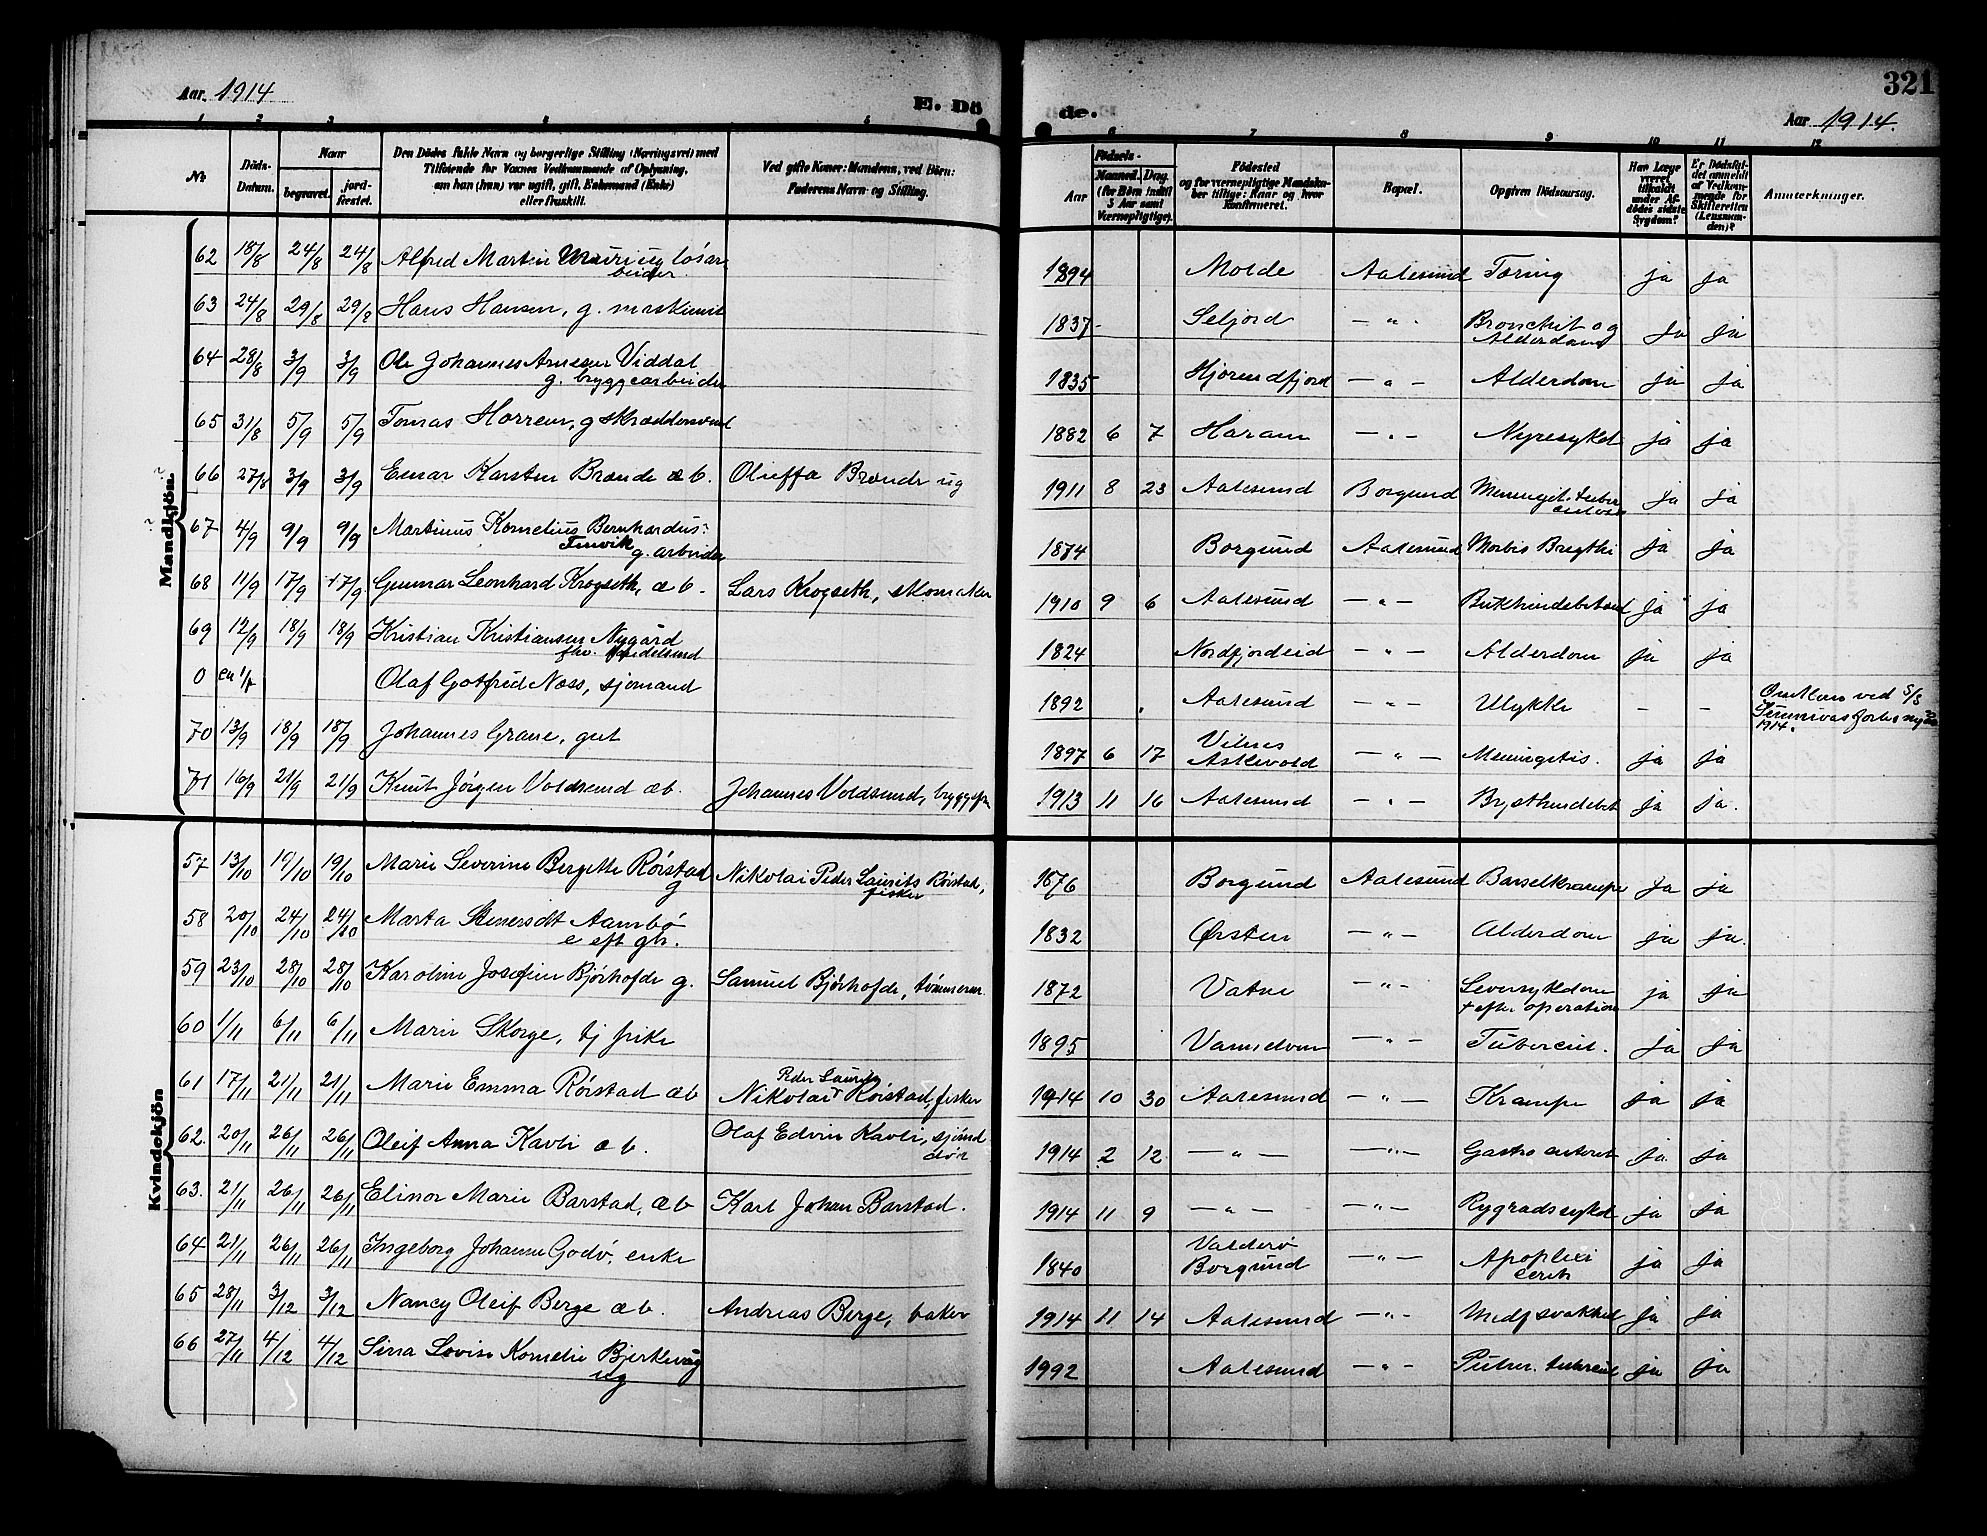 Aar. 1914
E. Dö
de.
321
Aar 1914.
1 2 3 4 5
6 7 8 9 10 11 12
No
Döds-
Datum.
Naar
begravet.
jord-
fæstet.
Den Dödes fulde Navn og borgerlige Stilling (Næringsvei) med
Tilføiende for Voxnes Vedkommende af Oplysning,
om han (hun) var ugift, gift, Enkemand (Enke)
eller fraskilt.
Ved gifte Koner: Mandens, ved Börn:
Faderens Navn og Stilling.
Födsels-
Aar
Maaned.
Dag.
(for Börn indtil
5 Aar samt
Værnepligtige).
Födested
og for værnepligtige Mandska-
ber tillige: Naar og hvor
konfirmeret.
Bopæl.
Opgiven Dödsaarsag.
Har Læge
været
tilkaldt
under Af-
dödes sidste
Sygdom?
Er Dödsfal-
det anmeldt
af Vedkom-
mende for
Skifteretten
(Lensman-
den)?
Anmærkninger.
Mandkjön.
62 18/8 24/8 24/8 Alfred Martin ug løsar
beider. 1894 Molde Aalesund Tæring ja ja
63 24/8 29/8 29/8 Hans Hansen, g. maskinist 1837 Seljord — " - Bronchit og
Alderdom ja ja
64 28/8 3/9 3/9 Ole Johannes Arnesen Viddal
g. bryggearbeider 1835 Hjørendfjord — " — Alderdom ja ja
65 31/8 5/9 5/9 Tomas Horren, g skræddersvend 1882 6 7 Haram — " — Nyresykd ja ja
66 27/8 3/9 3/9 Einar Karsten Brænde æb. Oluffa Brænde ug 1911 8 23 Aalesund Borgund Meningit tuber
culosa ja ja
67 4/9 9/9 9/9 Martinus Kornelius Bernhardus
g. arbeider 1874 Borgund Aalesund Morbis Brigthi ja ja
68 11/9 17/9 17/9 Gunnar Leonhard Krogseth, æb. Lars Krogseth, skomaker 1910 9 6 Aalesund — " — Bukhindebetænd ja ja
69 12/9 18/9 18/9 Kristian Kristiansen Nygård
fhv. handelsmd 1824 Nordfjordeid — " — Alderdom ja ja
0 Olaf Gotfred Næss, sjømand 1892 Aalesund — " — Ulykke - - Omkom ved S/S
1914.
70 13/9 18/9 18/9 Johannes Grane, gut 1897 6 17 Vilnes
Askevold — " — Meningitis. ja ja
71 16/9 21/9 21/9 Knut Jørgen Voldsund æb. Johannes Voldsund, 1913 11 16 Aalesund — " — Brysthindebet ja ja.
Kvindekjön
57 13/10 19/10 19/10 Marie Severine Bergette Rørstad
g Nikolai Peder Laurits Rørstad,
fisker 1876 Borgund Aalesund Barselkrampe ja ja
58 20/10 24/10 24/10 Marta Steinersdt Aambø
e eft gbr. 1832 Ørsten — " — Alderdom ja ja.
59 23/10 28/10 28/10 Karoline Josefine Bjørhofde g. Samuel Bjørhofde, tømmerm. 1872 Vatne — " — Leversykdom
+ efter operation ja ja
60 1/11 6/11 6/11 Marie Skorge, tj pike 1895 Vannelven — " — Tubercul. ja ja
61 17/11 21/11 21/11 Marie Emma Rørstad æb Peder Laurits
Nikolai Rørstad, fisker 1914 10 30 Aalesund — " — Krampe ja ja
62. 20/11 26/11 26/11 Oleif Anna Kavli æb. Olaf Edvin Kavli, sjømd
1914 2 12 — " — — " — Gastro enterit ja ja
63. 21/11 26/11 26/11 Elinor Marie Barstad, æb Karl Johan Barstad. 1914 11 9 — " — — " — Rygradssykd ja ja
64 21/11 26/11 26/11 Ingeborg Johanne Godø, enke 1840 Valderø
Borgund — " — Apoplexi
cereb ja ja
65 28/11 3/12 3/12 Nancy Oleif Berge æb. Andreas Berge, baker 1914 11 14 Aalesund — " — Medf svakhed ja ja
66 27/11 4/12 4/12 Sina Lovise Kornelie Bjerkevåg
ug 1992 Aalesund — " — Pulm. tubercul ja ja